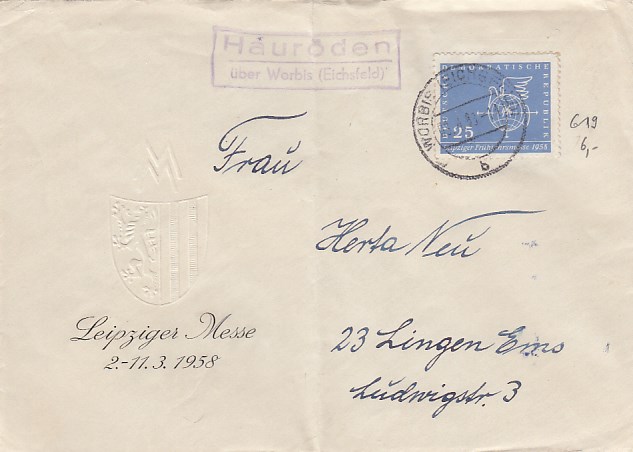 Hauröden
über Worbis (Eichsfeld)
DEUTSCHE DEMOKRATISCHE REPUBLIK
25
Leipziger Frühjahrsmesse 1958
WORBIS (EICHSF
b
619
6,-
Frau
Herta Neu
23 Lingen Ems
Ludwigstr. 3
Leipziger Messe
2.-11.3.1958